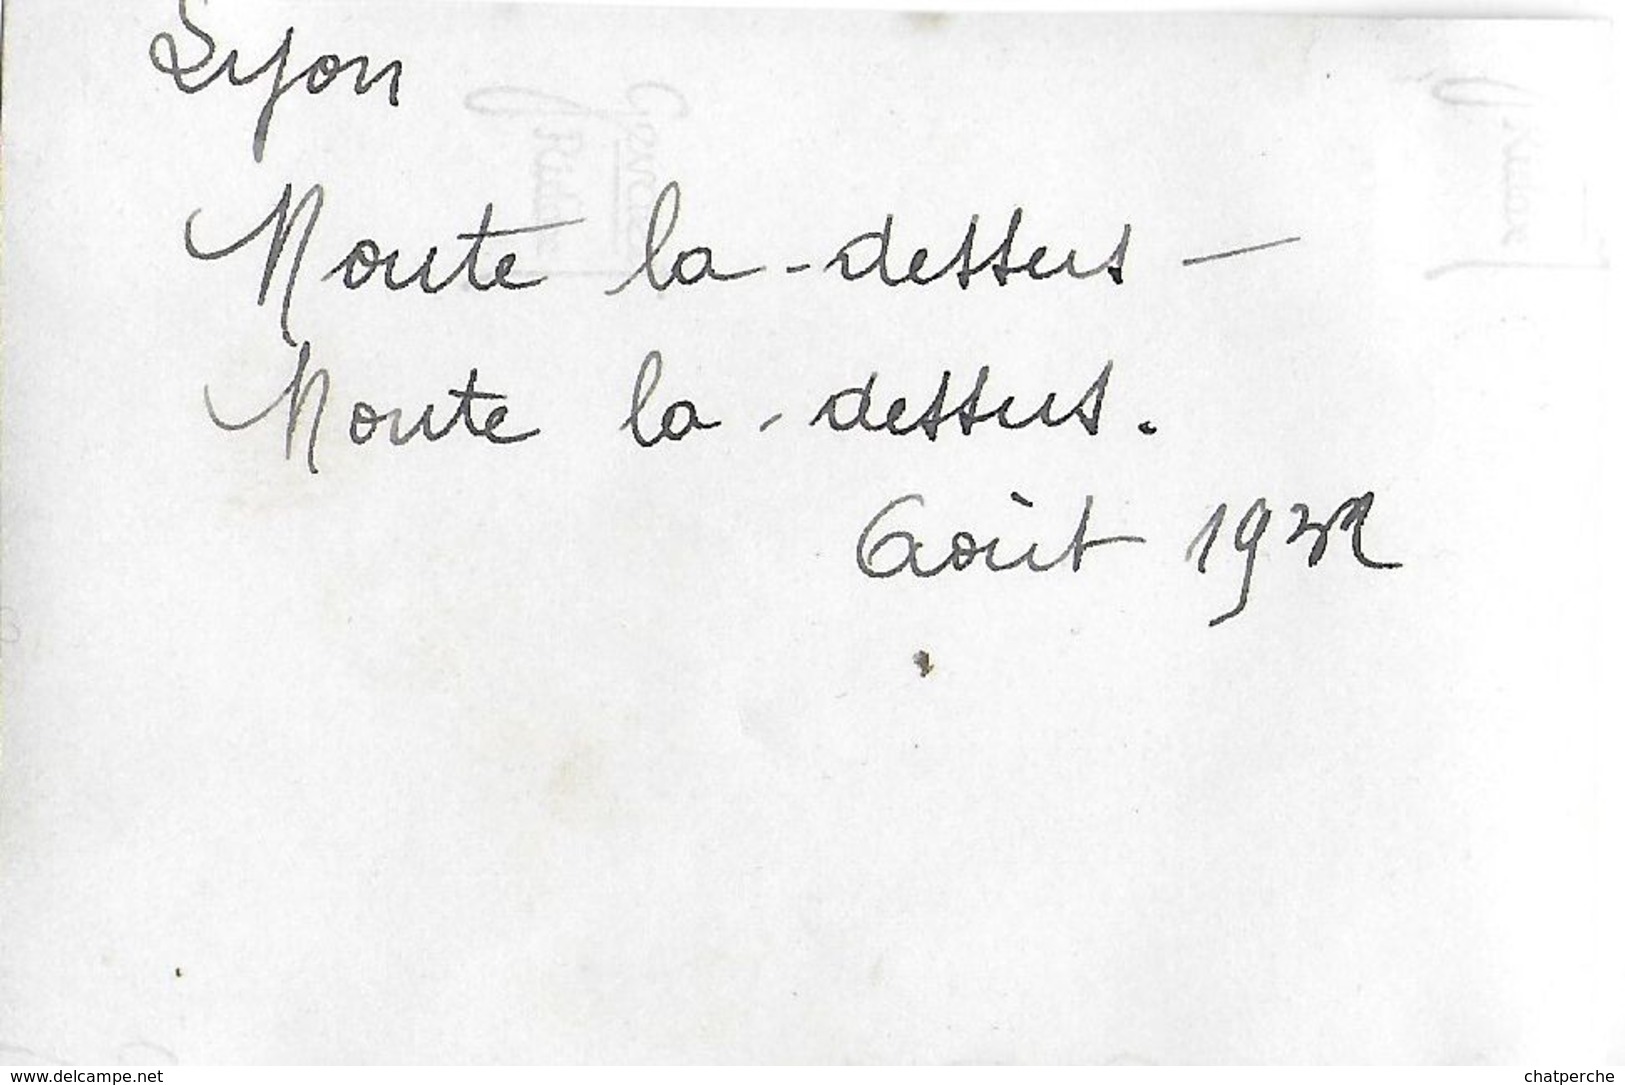 Lyon
Monte la-dessus -
Monte la-dessus.
Août 1932
www.delcampe.net
chatperche